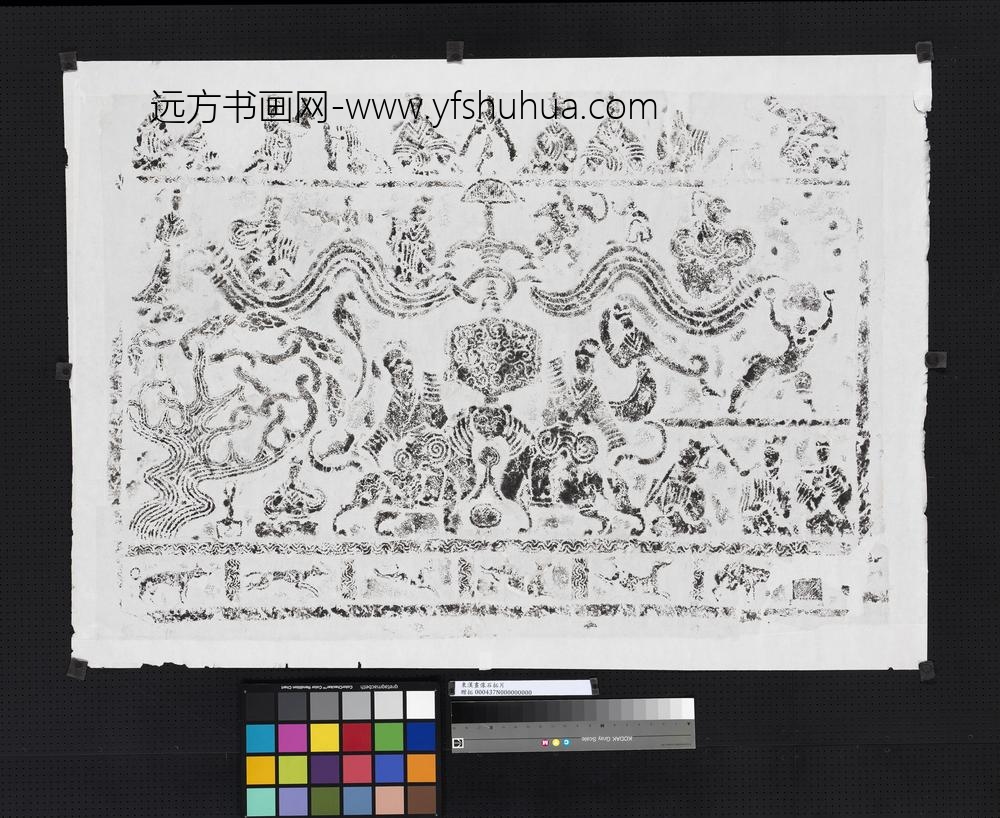 远方书画网-www.yfshuhua.com
東漢畫像石拓片
贈拓 000437N000000000
ColorChecker™ Color Rendition Chart
gretagmacbeth
KODAK Gray Scale
C
Y
M